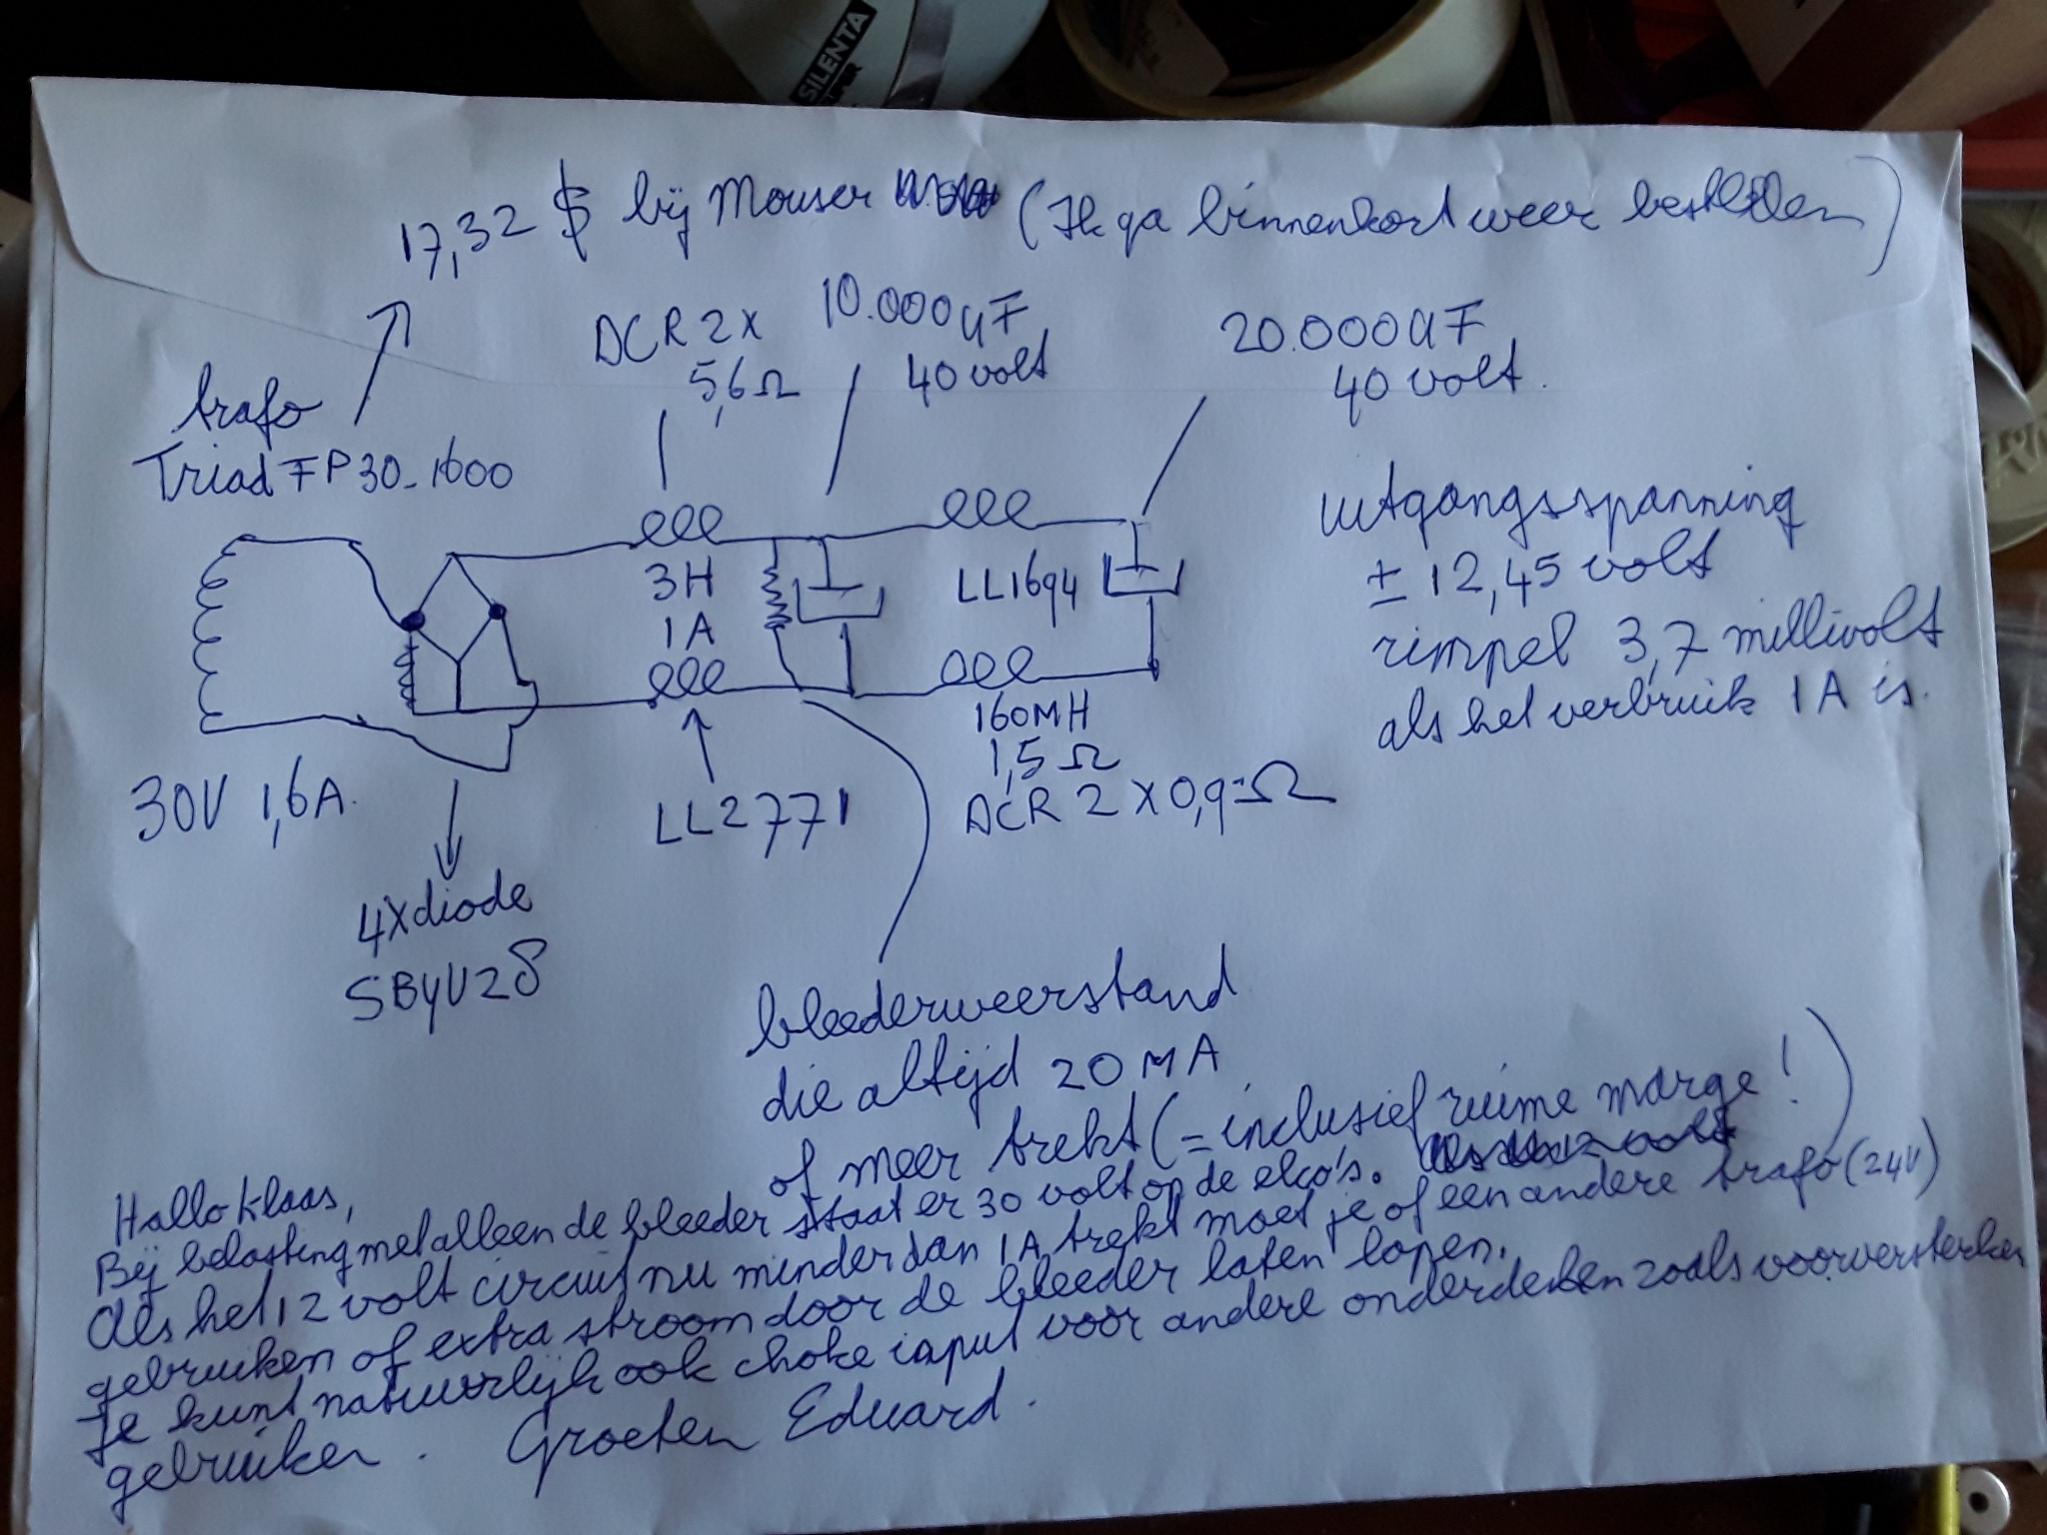 SILENTA
17,32 $ bij Mouser (Ik ga binnenkort weer bestellen)
DCR 2x
5,6Ω
10.000uF
40 volt
20.000uF
40 volt.
trafo
Triad FP30-1600
3H
1A
LL1694
uitgangsspanning
± 12,45 volt
rimpel 3,7 millivolt
als het verbruik 1A is.
160MH
1,5 Ω
DCR 2 x 0,9 Ω
30V 1,6A.
LL2771
4xdiode
SBYV28
bleederweerstand
die altijd 20 MA
of meer trekt (= inclusief ruime marge!)
Hallo Klaas,
Bij belasting met alleen de bleeder staat er 30 volt op de elco's.
Als het 12 volt circuit nu minder dan 1A trekt moet je of een andere trafo (24V)
gebruiken of extra stroom door de bleeder laten lopen.
Je kunt natuurlijk ook choke input voor andere onderdelen zoals voorversterker
gebruiken. Groeten Eduard.